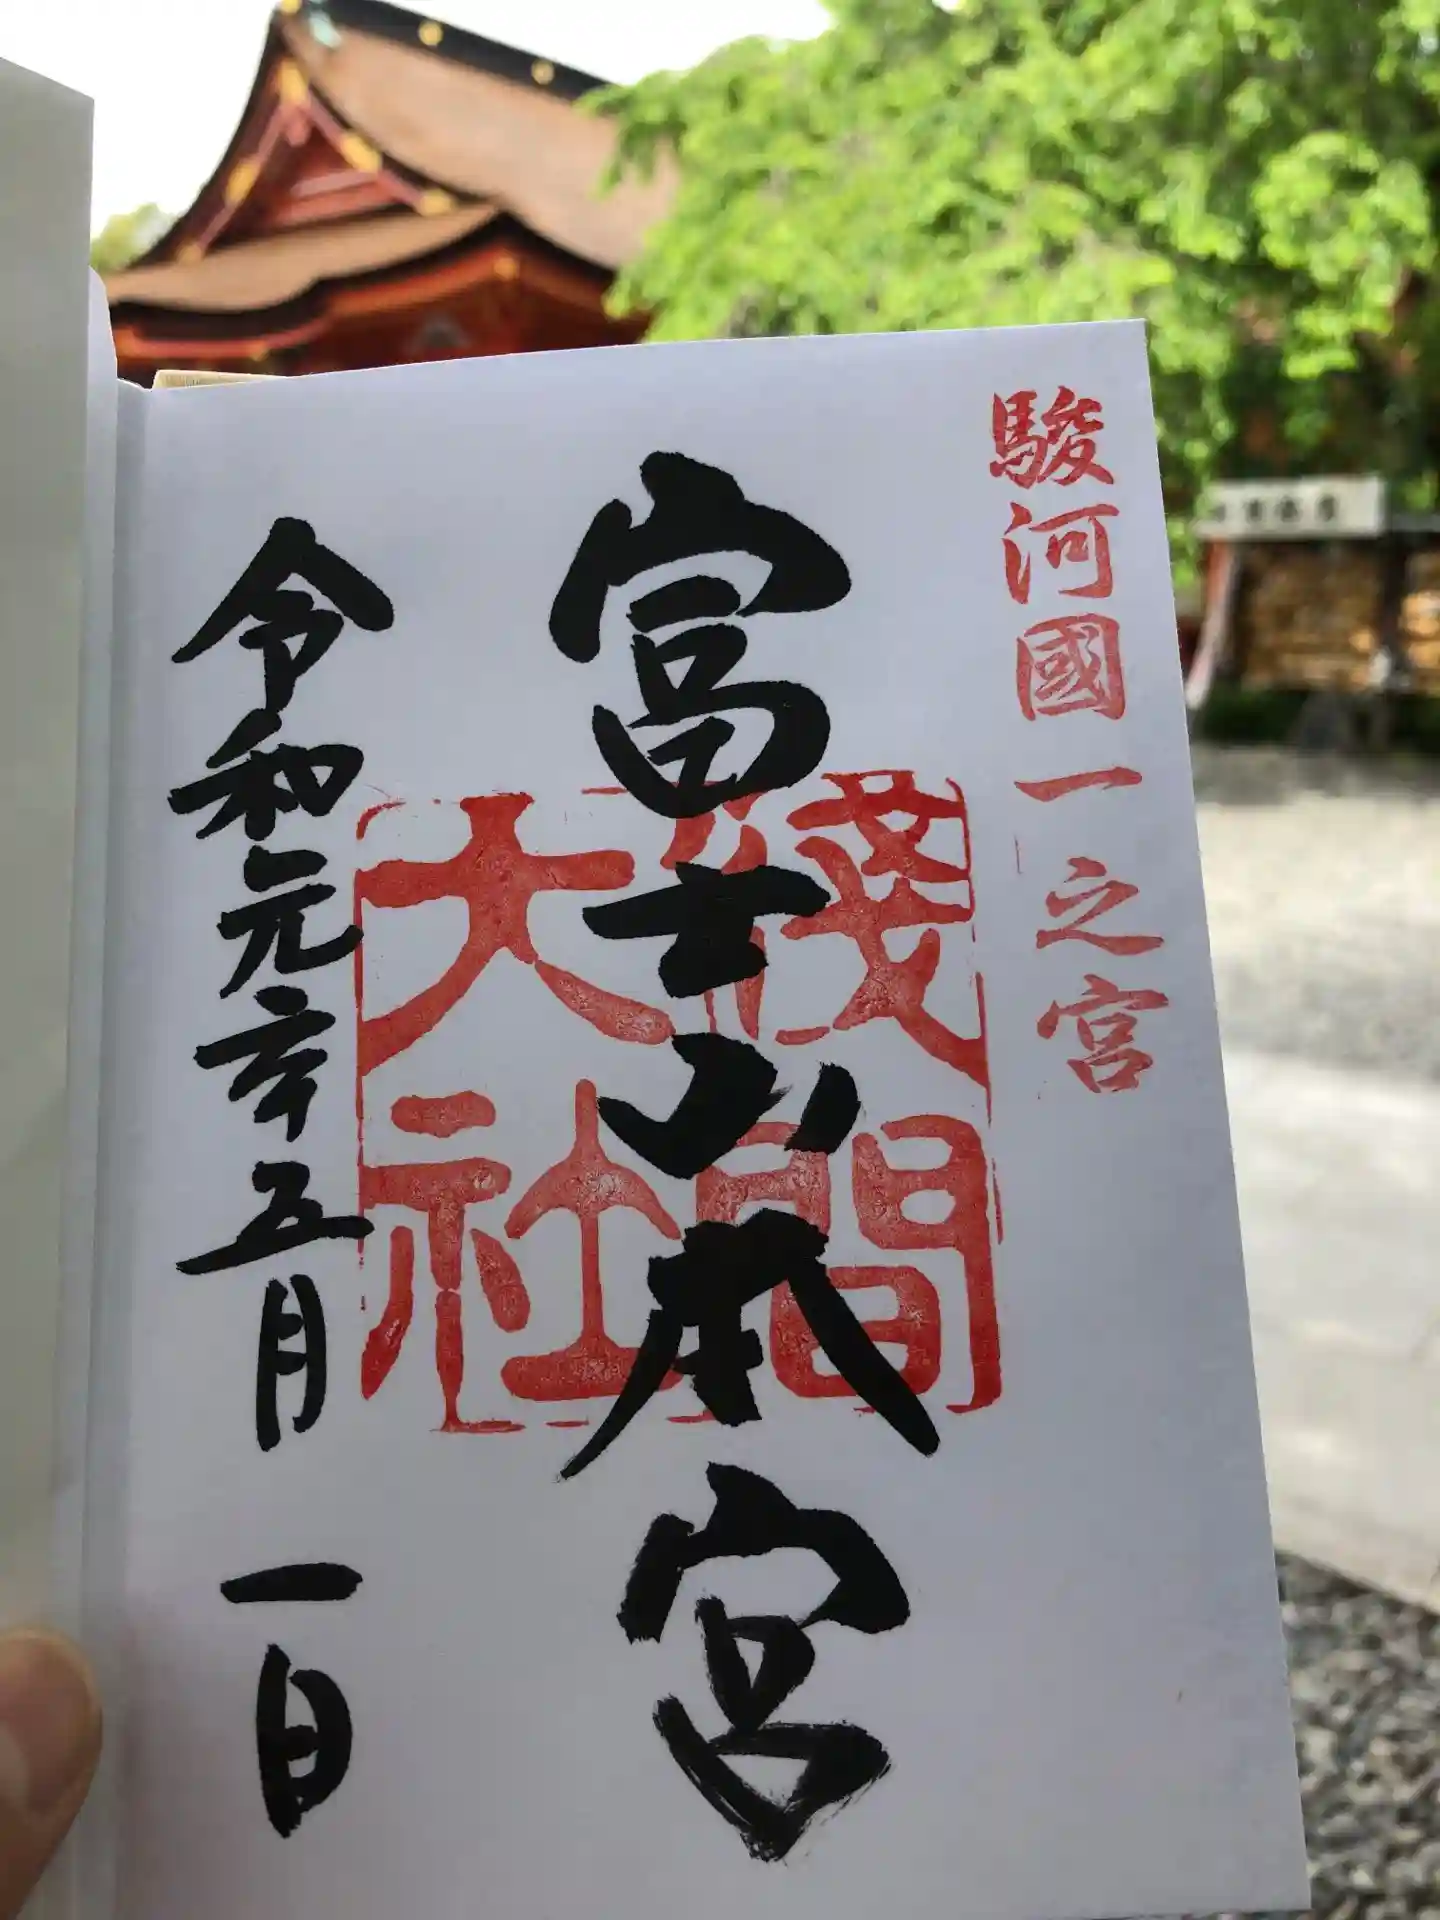 駿河國一之宮
富士山本宮
淺間
大社
令和元年五月一日